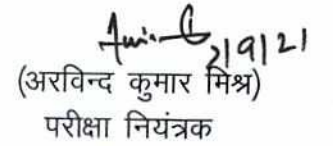 2/9/21
(अरविन्द कुमार मिश्र)
परीक्षा नियंत्रक